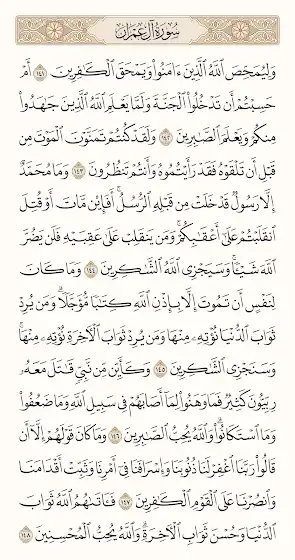 سُورَةُ آلِ عِمْرَانَ
وَلِيُمَحِّصَ ٱللَّهُ ٱلَّذِينَ ءَامَنُوا۟ وَيَمْحَقَ ٱلْكَـٰفِرِينَ ١٤١ أَمْ
حَسِبْتُمْ أَن تَدْخُلُوا۟ ٱلْجَنَّةَ وَلَمَّا يَعْلَمِ ٱللَّهُ ٱلَّذِينَ جَـٰهَدُوا۟
مِنكُمْ وَيَعْلَمَ ٱلصَّـٰبِرِينَ ١٤٢ وَلَقَدْ كُنتُمْ تَمَنَّوْنَ ٱلْمَوْتَ مِن
قَبْلِ أَن تَلْقَوْهُ فَقَدْ رَأَيْتُمُوهُ وَأَنتُمْ تَنظُرُونَ ١٤٣ وَمَا مُحَمَّدٌ
إِلَّا رَسُولٌ قَدْ خَلَتْ مِن قَبْلِهِ ٱلرُّسُلُ ۚ أَفَإِي۟ن مَّاتَ أَوْ قُتِلَ
ٱنقَلَبْتُمْ عَلَىٰٓ أَعْقَـٰبِكُمْ ۚ وَمَن يَنقَلِبْ عَلَىٰ عَقِبَيْهِ فَلَن يَضُرَّ
ٱللَّهَ شَيْـًٔا ۗ وَسَيَجْزِى ٱللَّهُ ٱلشَّـٰكِرِينَ ١٤٤ وَمَا كَانَ
لِنَفْسٍ أَن تَمُوتَ إِلَّا بِإِذْنِ ٱللَّهِ كِتَـٰبًا مُّؤَجَّلًا ۗ وَمَن يُرِدْ
ثَوَابَ ٱلدُّنْيَا نُؤْتِهِۦ مِنْهَا وَمَن يُرِدْ ثَوَابَ ٱلْـَٔاخِرَةِ نُؤْتِهِۦ مِنْهَا ۚ
وَسَنَجْزِى ٱلشَّـٰكِرِينَ ١٤٥ وَكَأَيِّن مِّن نَّبِىٍّ قَـٰتَلَ مَعَهُۥ
رِبِّيُّونَ كَثِيرٌ فَمَا وَهَنُوا۟ لِمَآ أَصَابَهُمْ فِى سَبِيلِ ٱللَّهِ وَمَا ضَعُفُوا۟
وَمَا ٱسْتَكَانُوا۟ ۗ وَٱللَّهُ يُحِبُّ ٱلصَّـٰبِرِينَ ١٤٦ وَمَا كَانَ قَوْلَهُمْ إِلَّآ أَن
قَالُوا۟ رَبَّنَا ٱغْفِرْ لَنَا ذُنُوبَنَا وَإِسْرَافَنَا فِىٓ أَمْرِنَا وَثَبِّتْ أَقْدَامَنَا
وَٱنصُرْنَا عَلَى ٱلْقَوْمِ ٱلْكَـٰفِرِينَ ١٤٧ فَـَٔاتَىٰهُمُ ٱللَّهُ ثَوَابَ
ٱلدُّنْيَا وَحُسْنَ ثَوَابِ ٱلْـَٔاخِرَةِ ۗ وَٱللَّهُ يُحِبُّ ٱلْمُحْسِنِينَ ١٤٨